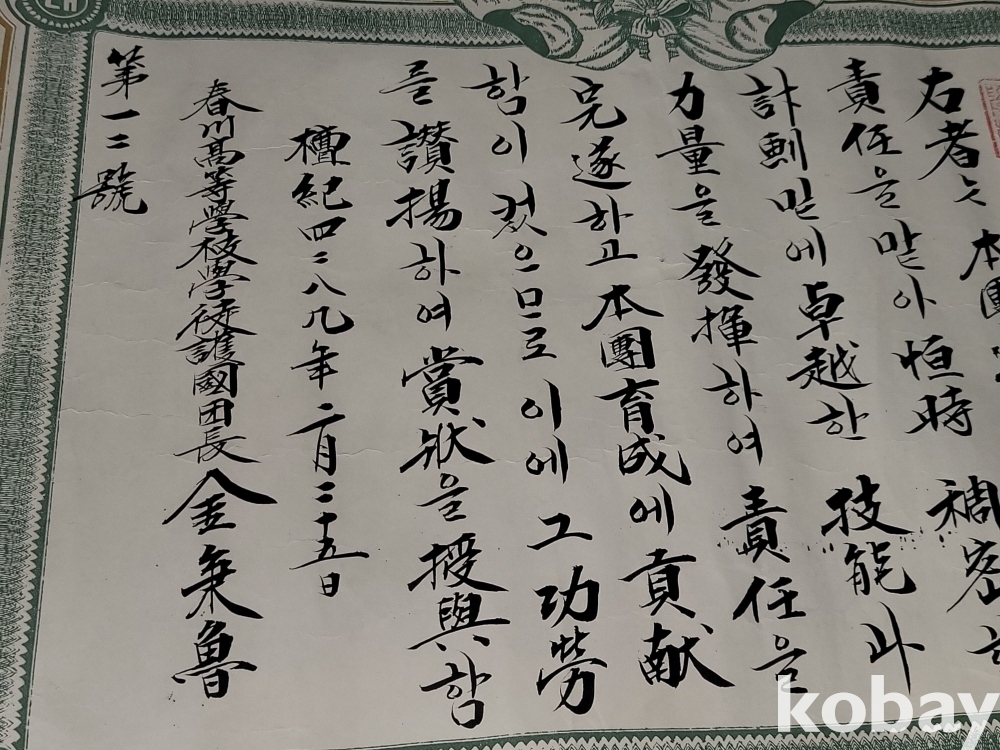 右者는 本團
責任을 맡아 恒時 稠密한
計劃 밑에 卓越한 技能과
力量을 發揮하여 責任을
完遂하고 本團育成에 貢献
함이 컷으므로 이에 그 功勞
를 讃揚하여 賞狀을 授與함
檀紀四二八九年二月二十五日
春川高等學校學徒護國团長 金秉魯
第一二號
kobay